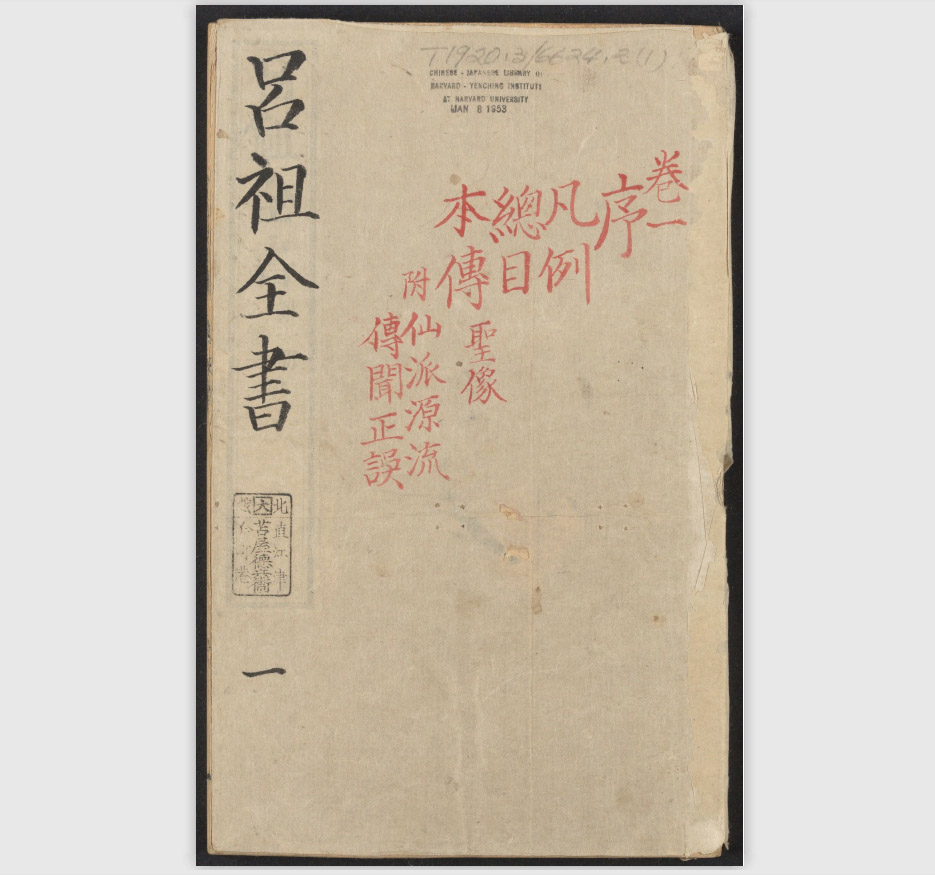 T1920.3/6624.2(1)
CHINESE - JAPANESE LIBRARY OF
HARVARD - YENCHING INSTITUTE
AT HARVARD UNIVERSITY
JAN 8 1953
卷一
序
凡例
總目
本傳 聖像
附仙派源流
傳聞正誤
呂祖全書
一
大
苫屋德兵衛